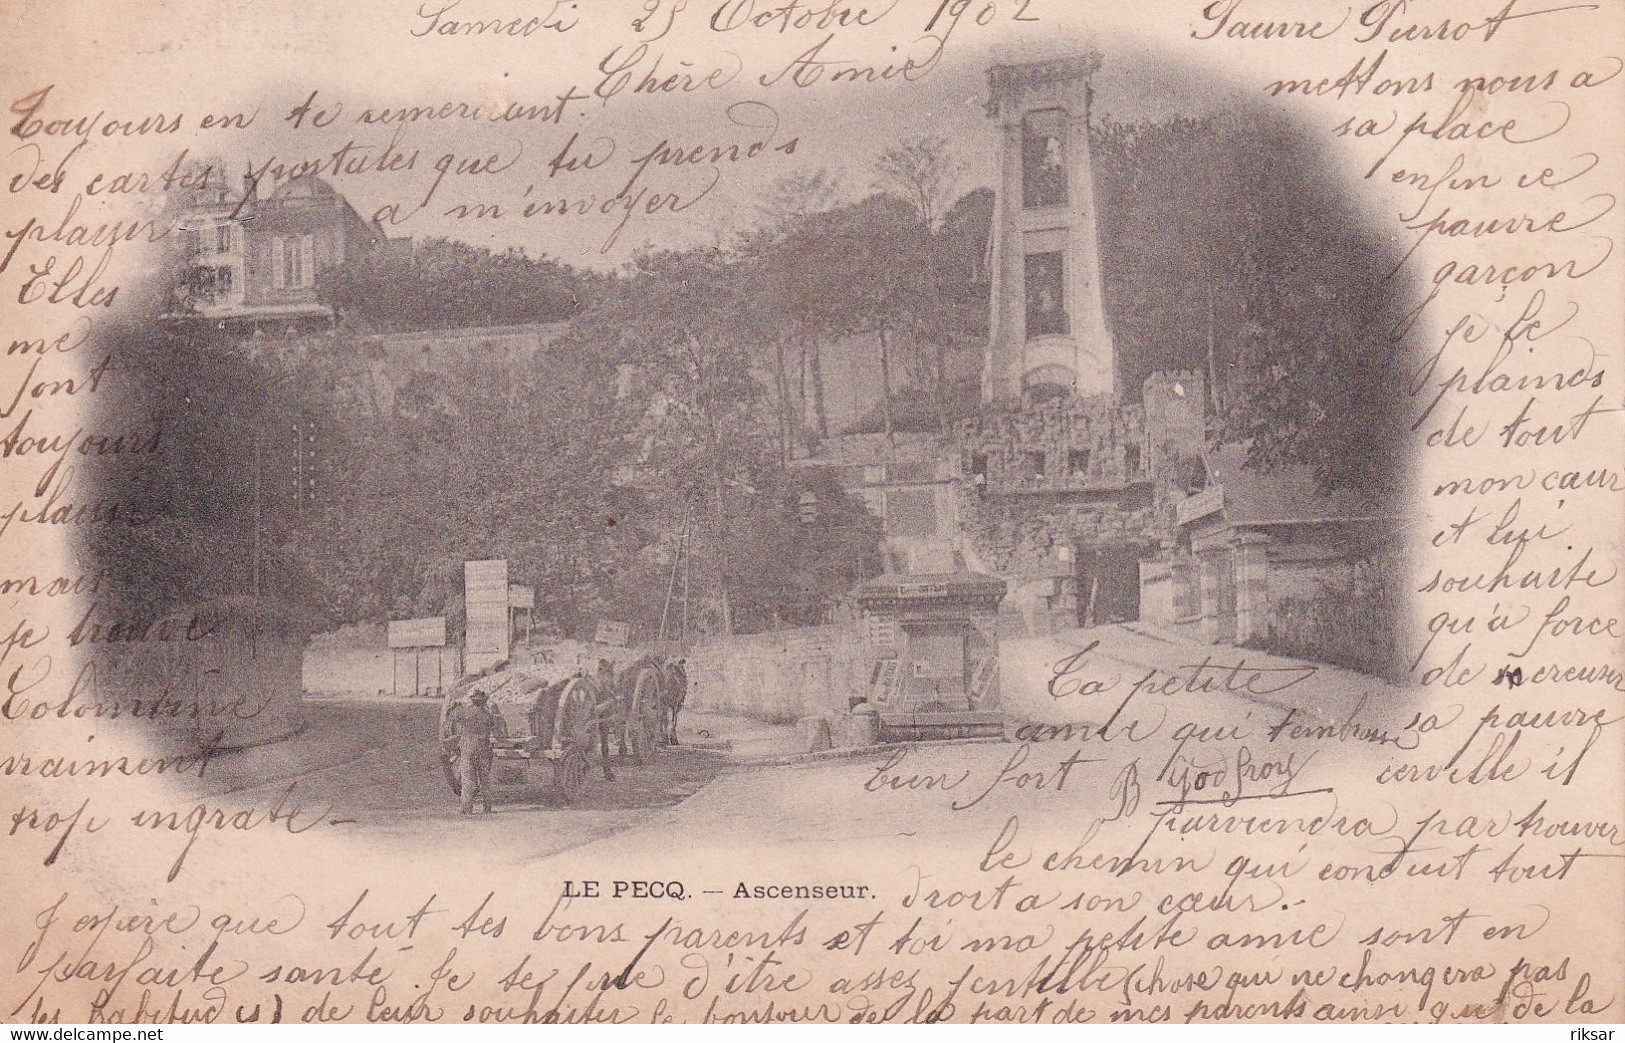 Samedi 25 Octobre 1902
Chère Amie
Toujours en te remerciant
des cartes postales que tu prends
plaisir a m'envoyer
Elles
me
font
toujours
plaisir
mais
je trouve
Colombine
vraiment
trop ingrate –
Pauvre Pierrot
mettons nous a
sa place
enfin ce
pauvre
garçon
je le
plainds
de tout
mon cœur
et lui
souhaite
qu'a force
de se creuser
sa pauvre
cervelle il
parviendra par trouver
le chemin qui conduit tout
droit a son cœur..
Ta petite
amie qui t'embrasse
bien fort
B Godfroy
LE PECQ. — Ascenseur.
J'espère que tout tes bons parents et toi ma petite amie sont en
parfaite santé. Je te prie d'être assez gentille (chose qui ne changera pas
tes habitudes) de leur souhaiter le bonjour de la part de mes parents ainsi que de la
riksar